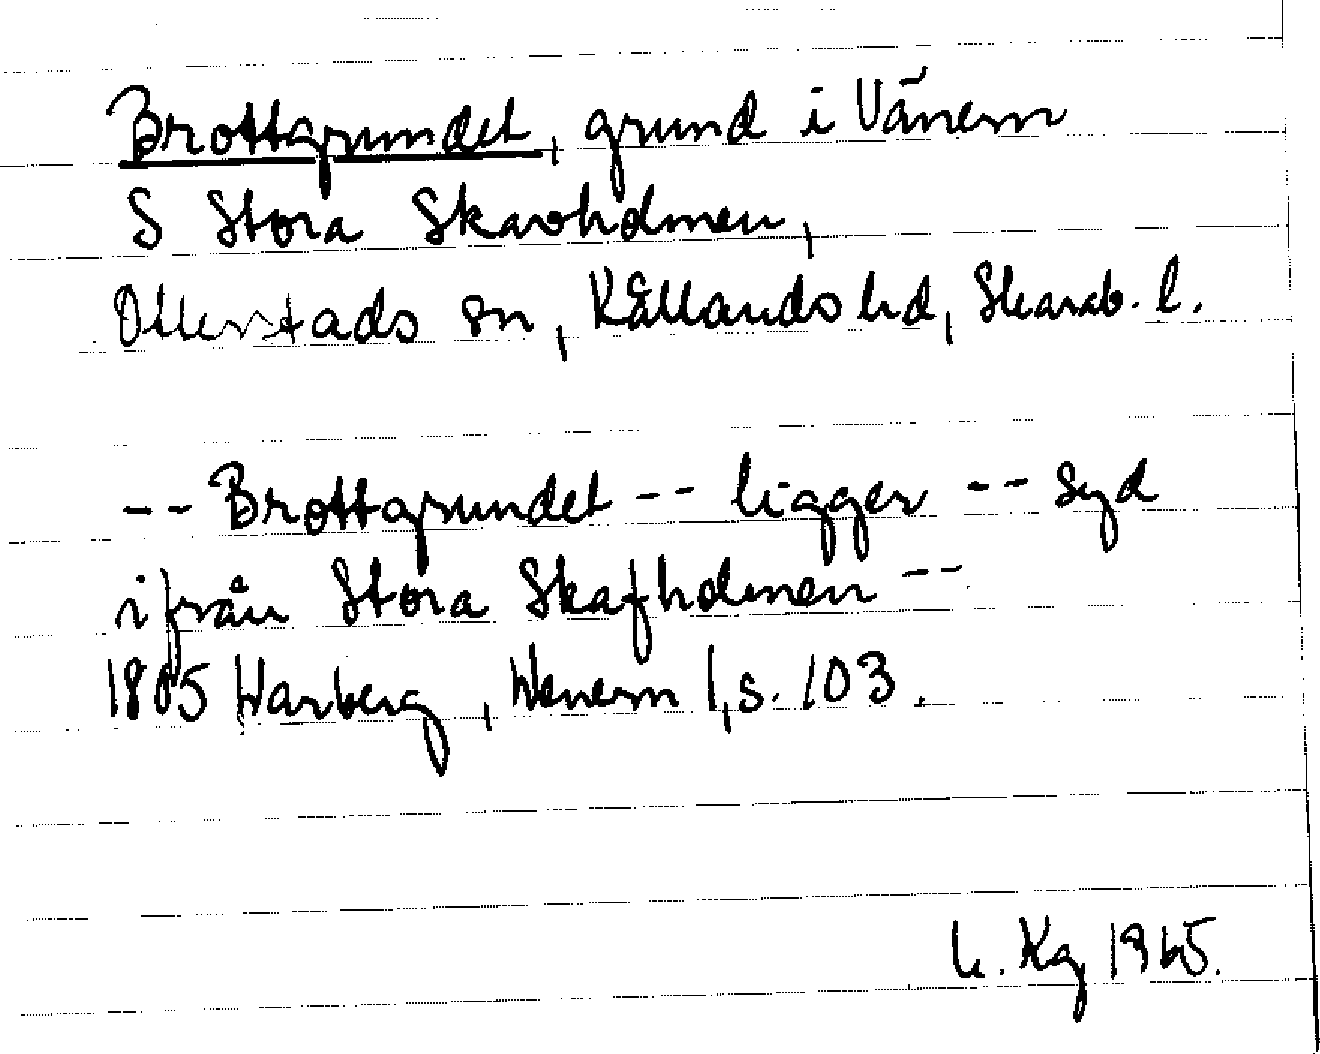 Brottgrundet, grund i Vänern
S Stora Skavholmen,
Otterstads sn, Kållands hd, Skarab. l.
-- Brottgrundet -- ligger -- syd
ifrån Stora Skafholmen --
1805 Warberg, Wenern 1, s. 103.
Kg 1965.